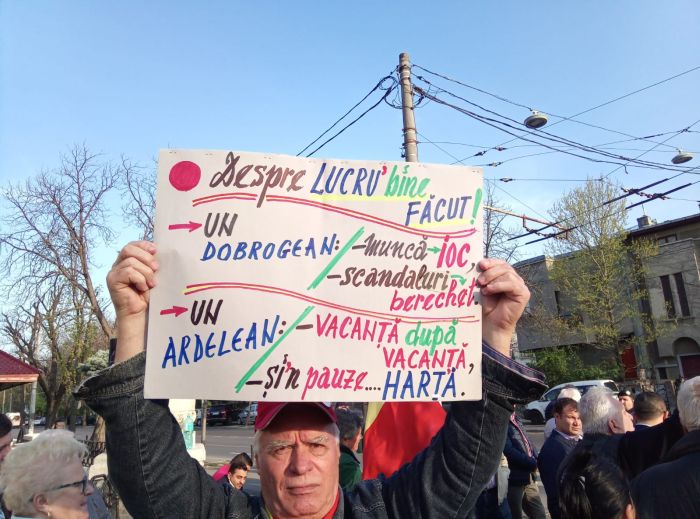 Despre LUCRU' bine
FĂCUT!
→ UN
DOBROGEAN: - muncă → IOC,
- scandaluri →
berechet.
→ UN
ARDELEAN: - VACANȚĂ după
VACANȚĂ,
- și'n pauze.... HARȚĂ.